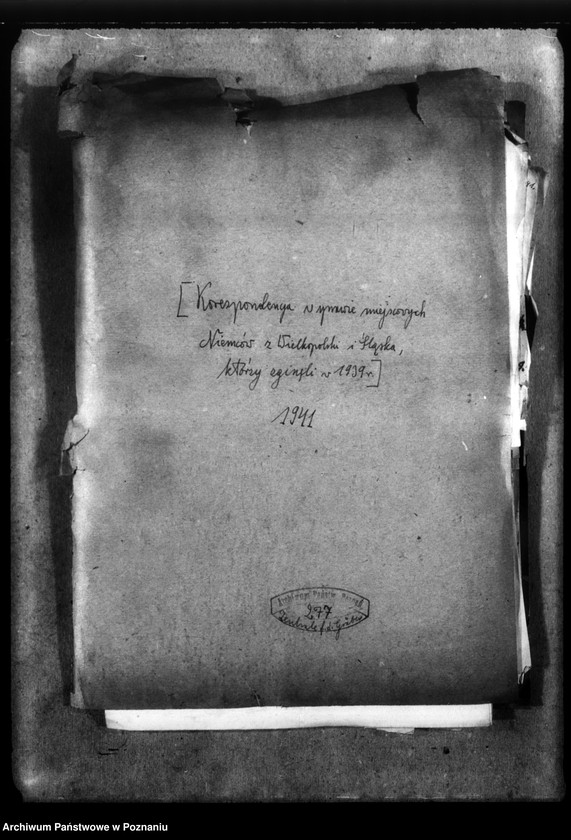 [Korespondencja w sprawie miejscowych
Niemców z Wielkopolski i Śląska,
którzy zginęli w 1939 r.]
1941
277
Zentrale f. d. Gräber
Archiwum Państwowe w Poznaniu